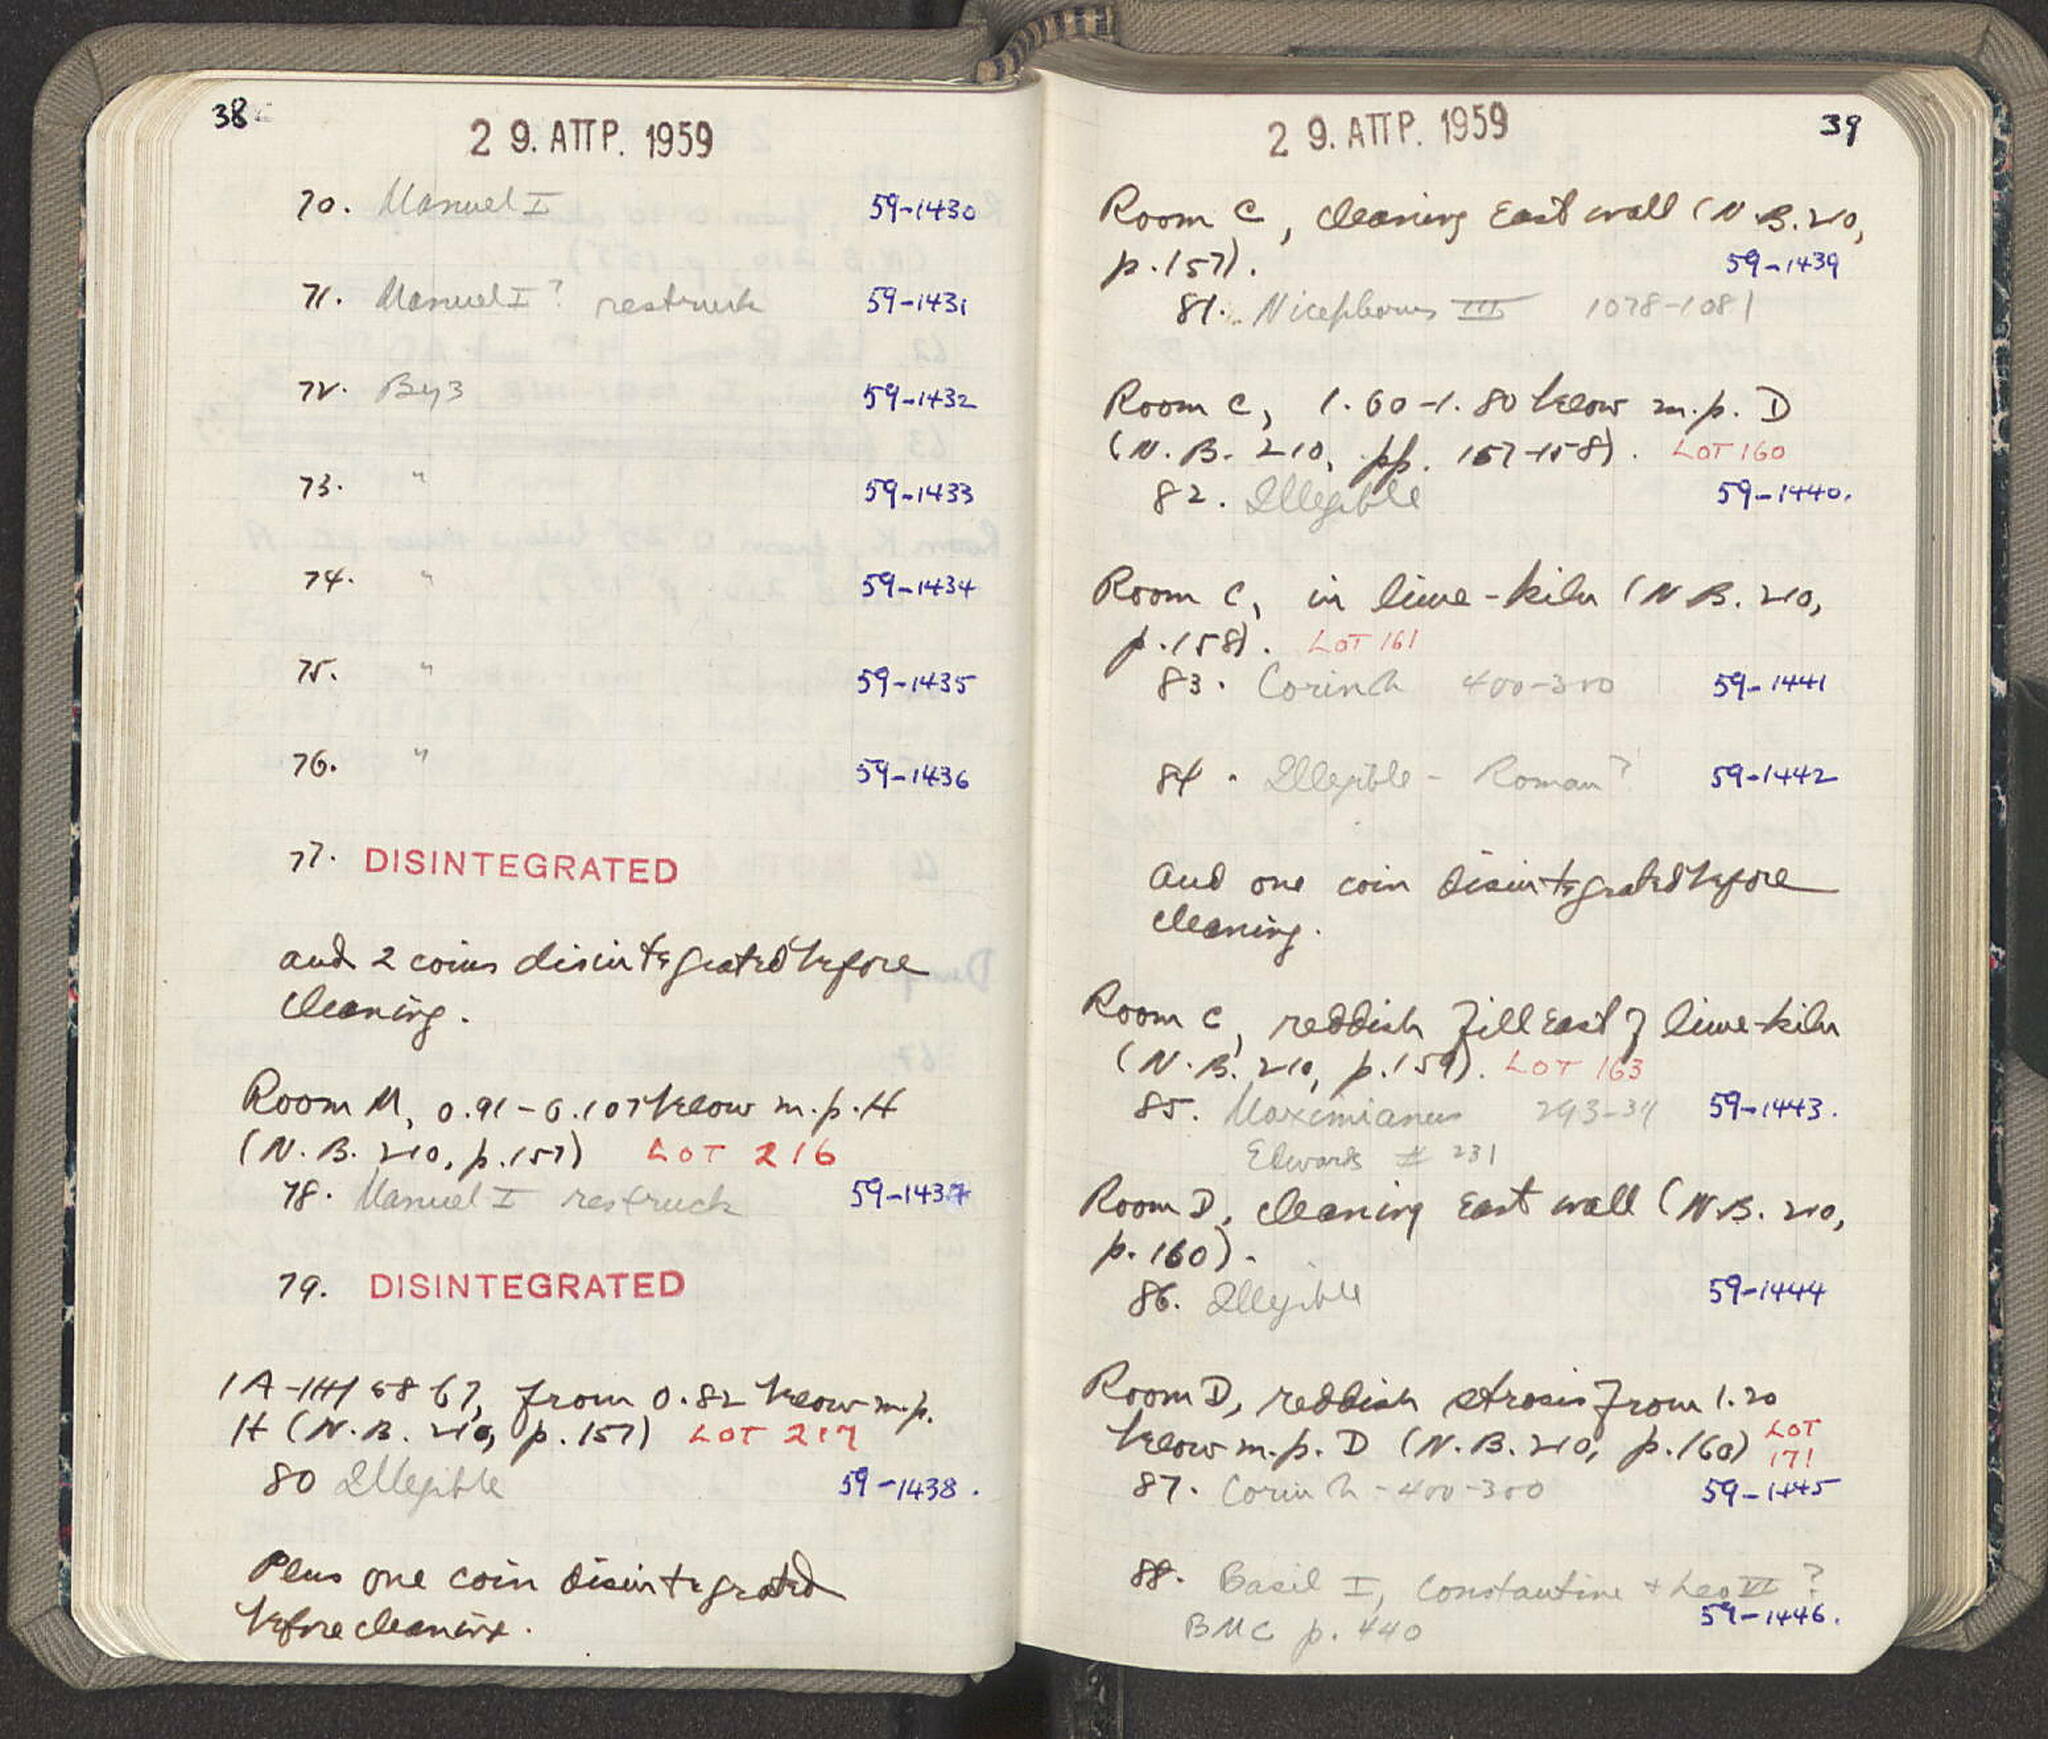 38
29. ΑΠΡ. 1959
70. Manuel I 59-1430
71. Manuel I? restruck 59-1431
72. Byz 59-1432
73. " 59-1433
74. " 59-1434
75. " 59-1435
76. " 59-1436
77. DISINTEGRATED
and 2 coins disintegrated before
cleaning.
Room M, 0.91-0.107 below m.p. H
(N.B. 210, p.157) LOT 216
78. Manuel I restruck 59-1437
79. DISINTEGRATED
from 0.82 below m.p.
H (N.B. 210, p.157) LOT 217
80 Illegible 59-1438.
Plus one coin disintegrated
before cleaning.
29. ΑΠΡ. 1959
39
Room C, cleaning East wall (N.B. 210,
p.157). 59-1439
81. Nicephorus III 1078-1081
Room C, 1.60-1.80 below m.p. D
(N.B. 210, pp. 157-158). LOT 160
82. Illegible 59-1440.
Room C, in lime-kiln (N.B. 210,
p.158). LOT 161
83. Corinth 400-300 59-1441
84. Illegible - Roman? 59-1442
and one coin disintegrated before
cleaning.
Room C, reddish fill East of lime-kiln
(N.B. 210, p.159). LOT 163
85. Maximianus 59-1443.
Edwards # 231
Room D, cleaning East wall (N.B. 210,
p. 160).
86. Illegible 59-1444
Room D, reddish strosis from 1.20
below m.p. D (N.B. 210, p.160) LOT
171
87. Corinth - 400-300 59-1445
88. Basil I, Constantine + Leo VI?
BMC p. 440 59-1446.